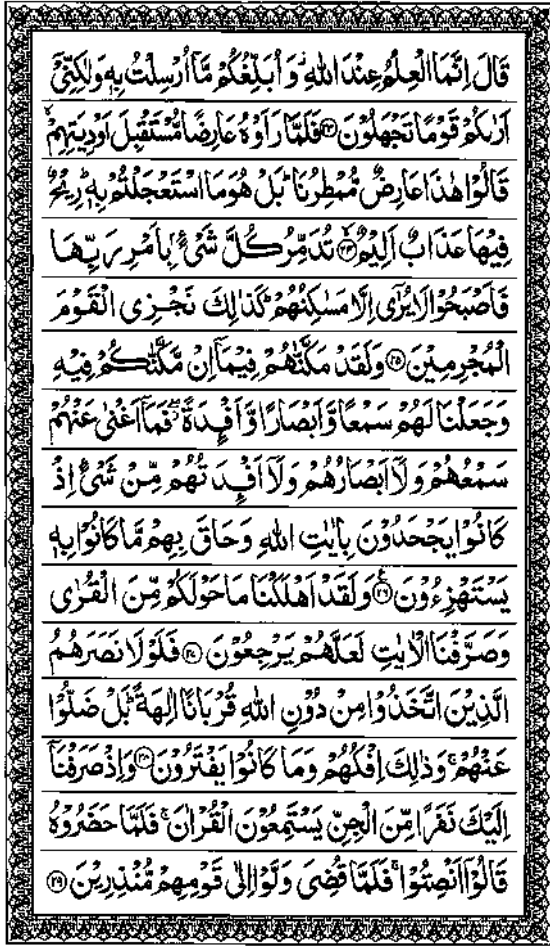 قَالَ اِنَّمَا الْعِلْمُ عِنْدَ اللّٰهِ ۖ وَ اُبَلِّغُكُمْ مَّاۤ اُرْسِلْتُ بِهٖ وَلٰكِنِّیْۤ
اَرٰىكُمْ قَوْمًا تَجْهَلُوْنَ ﴿۲۳﴾ فَلَمَّا رَاَوْهُ عَارِضًا مُّسْتَقْبِلَ اَوْدِيَتِهِمْ ۙ
قَالُوْا هٰذَا عَارِضٌ مُّمْطِرُنَا ؕ بَلْ هُوَ مَا اسْتَعْجَلْتُمْ بِهٖ ؕ رِيْحٌ
فِيْهَا عَذَابٌ اَلِيْمٌ ﴿۲۴﴾ تُدَمِّرُ كُلَّ شَیْءٍۭ بِاَمْرِ رَبِّهَا
فَاَصْبَحُوْا لَا يُرٰۤی اِلَّا مَسٰكِنُهُمْ ؕ كَذٰلِكَ نَجْزِی الْقَوْمَ
الْمُجْرِمِيْنَ ﴿۲۵﴾ وَلَقَدْ مَكَّنّٰهُمْ فِيْمَاۤ اِنْ مَّكَّنّٰكُمْ فِيْهِ
وَجَعَلْنَا لَهُمْ سَمْعًا وَّاَبْصَارًا وَّاَفْـِٕدَةً ۖ فَمَاۤ اَغْنٰی عَنْهُمْ
سَمْعُهُمْ وَلَاۤ اَبْصَارُهُمْ وَلَاۤ اَفْـِٕدَتُهُمْ مِّنْ شَیْءٍ اِذْ
كَانُوْا يَجْحَدُوْنَ بِاٰيٰتِ اللّٰهِ وَحَاقَ بِهِمْ مَّا كَانُوْا بِهٖ
يَسْتَهْزِءُوْنَ ﴿۲۶﴾ وَلَقَدْ اَهْلَكْنَا مَا حَوْلَكُمْ مِّنَ الْقُرٰی
وَصَرَّفْنَا الْاٰيٰتِ لَعَلَّهُمْ يَرْجِعُوْنَ ﴿۲۷﴾ فَلَوْلَا نَصَرَهُمُ
الَّذِيْنَ اتَّخَذُوْا مِنْ دُوْنِ اللّٰهِ قُرْبَانًا اٰلِهَةً ؕ بَلْ ضَلُّوْا
عَنْهُمْ ۚ وَذٰلِكَ اِفْكُهُمْ وَمَا كَانُوْا يَفْتَرُوْنَ ﴿۲۸﴾ وَاِذْ صَرَفْنَاۤ
اِلَيْكَ نَفَرًا مِّنَ الْجِنِّ يَسْتَمِعُوْنَ الْقُرْاٰنَ ۚ فَلَمَّا حَضَرُوْهُ
قَالُوْۤا اَنْصِتُوْا ۚ فَلَمَّا قُضِیَ وَلَّوْا اِلٰی قَوْمِهِمْ مُّنْذِرِيْنَ ﴿۲۹﴾